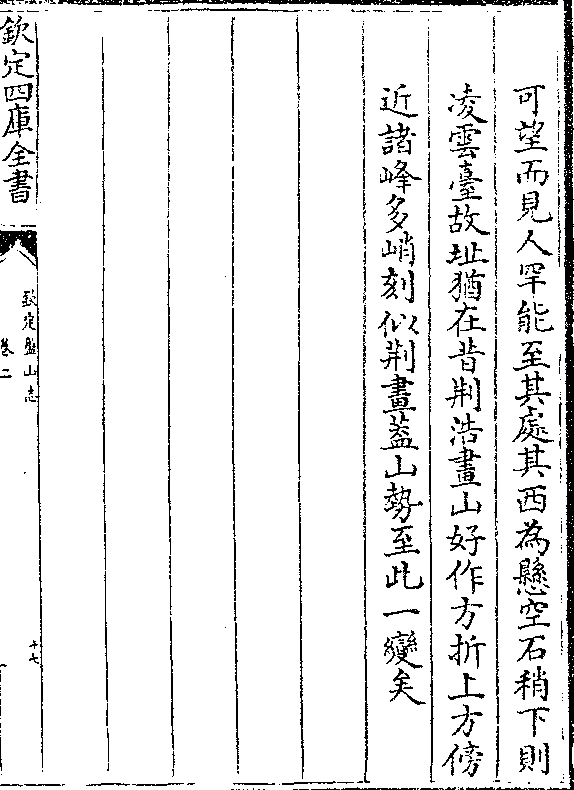 可望而見人罕能至其處其西為懸空石稍下則
凌雲臺故址猶在昔荆浩畫山好作方折上方傍
近諸峰多峭刻似荆畫葢山勢至此一變矣
欽定四庫全書
欽定盤山志
卷二
十七